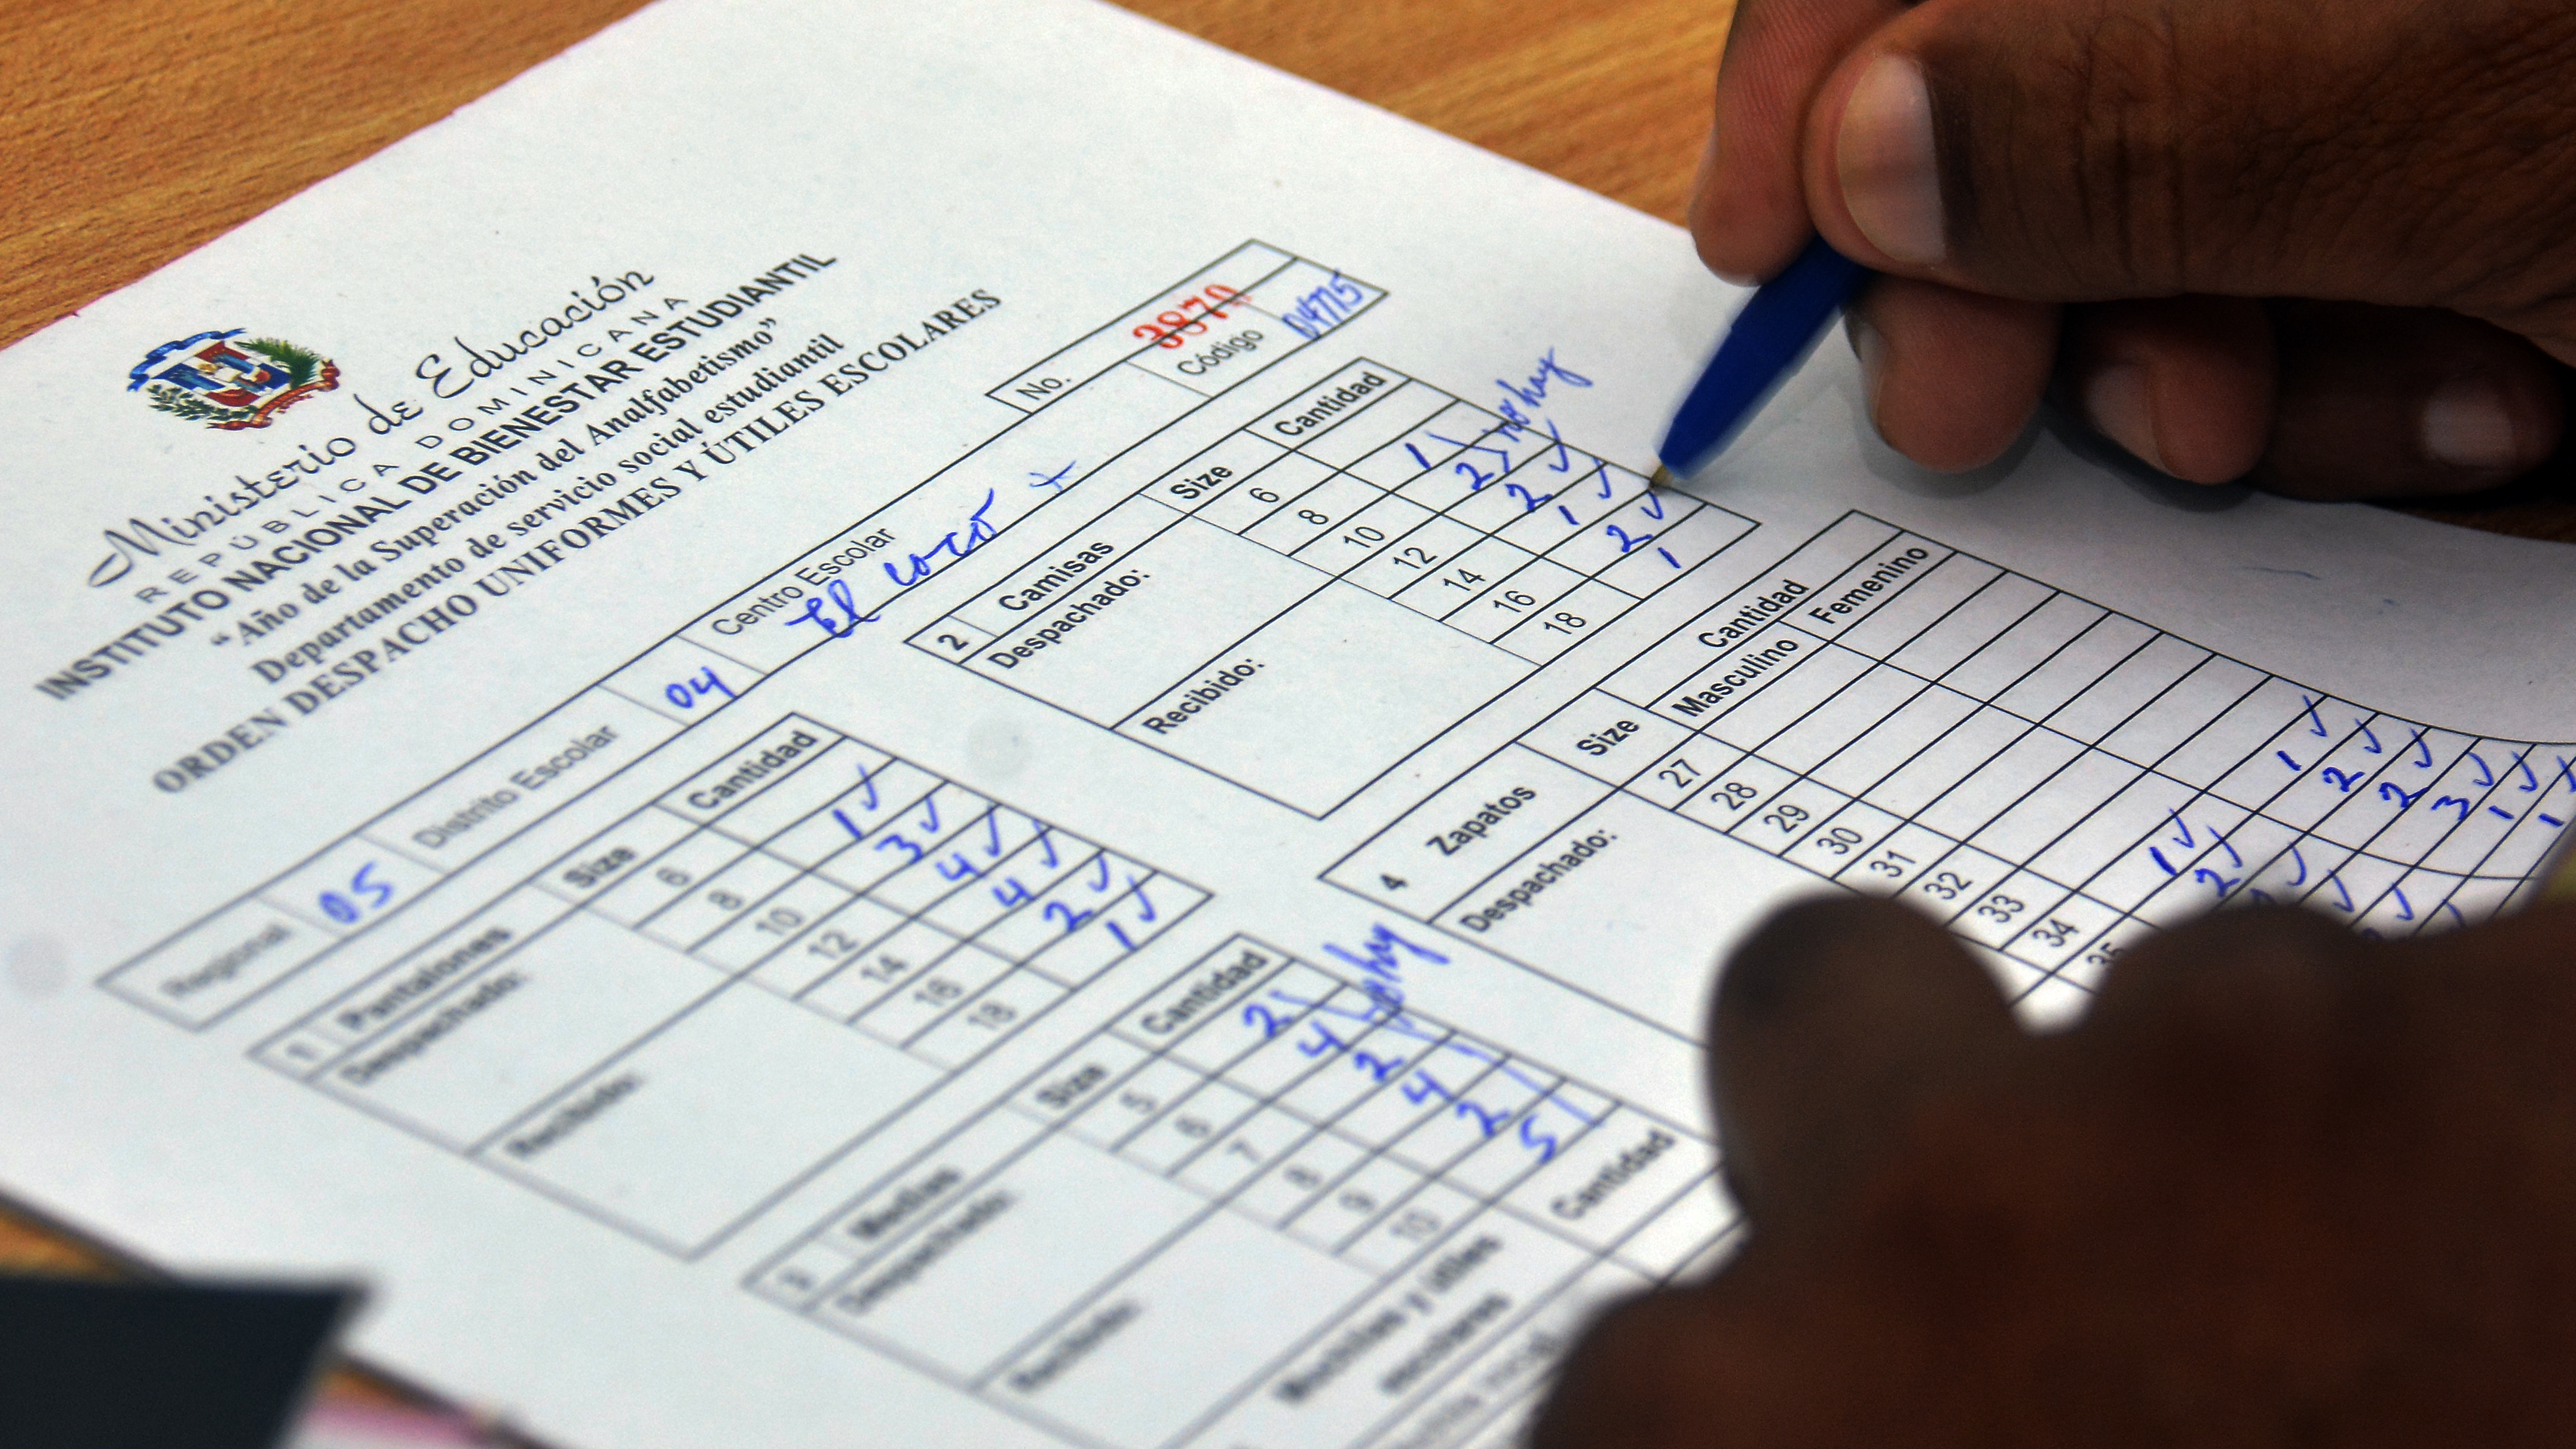 Ministerio de Educación
REPÚBLICA DOMINICANA
INSTITUTO NACIONAL DE BIENESTAR ESTUDIANTIL
“Año de la Superación del Analfabetismo”
Departamento de servicio social estudiantil
ORDEN DESPACHO UNIFORMES Y ÚTILES ESCOLARES
No. 3870
Regional 05 Distrito Escolar 04 Centro Escolar El coco Código 04775
1 Pantalones Size Cantidad
Despachado:
Recibido:
6
8 1 ✓
10 3 ✓
12 4 ✓
14 4 ✓
16 2 ✓
18 1 ✓
2 Camisas Size Cantidad
Despachado:
Recibido:
6
8 1 no hay
10 2
12 2 ✓
14 1 ✓
16 2 ✓
18 1
3 Medias Size Cantidad
Despachado:
Recibido:
5 2
6 4
7 2
8 4
9 2
10 5
4 Zapatos Size Cantidad
Masculino Femenino
Despachado:
27
28
29
30
31
32
33
34
35
1 ✓
2 ✓
2 ✓
3 ✓
1 ✓
1 ✓
1 ✓
2 ✓
Mochilas y útiles escolares Cantidad